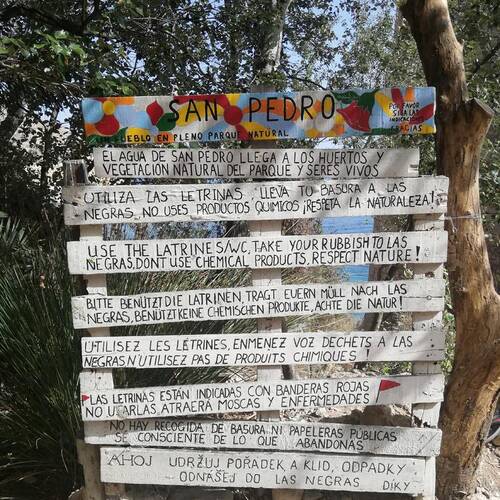 SAN PEDRO
PUEBLO EN PLENO PARQUE NATURAL
POR FAVOR
SIGA LAS
INDICACIONES
GRACIAS
EL AGUA DE SAN PEDRO LLEGA A LOS HUERTOS Y
VEGETACIÓN NATURAL DEL PARQUE Y SERES VIVOS
UTILIZA LAS LETRINAS LLEVA TU BASURA A LAS
NEGRAS, NO USES PRODUCTOS QUIMICOS ¡RESPETA LA NATURALEZA!
USE THE LATRINE S/WC, TAKE YOUR RUBBISH TO LAS
NEGRAS, DONT USE CHEMICAL PRODUCTS, RESPECT NATURE!
BITTE BENÜTZT DIE LATRINEN, TRAGT EUERN MÜLL NACH LAS
NEGRAS, BENÜTZT KEINE CHEMISCHEN PRODUKTE, ACHTE DIE NATUR!
UTILISEZ LES LÉTRINES, ENMENEZ VOZ DECHETS A LAS
NEGRAS N'UTILISEZ PAS DE PRODUITS CHIMIQUES!
LAS LETRINAS ESTÁN INDICADAS CON BANDERAS ROJAS
NO USARLAS, ATRAERA MOSCAS Y ENFERMEDADES!
NO HAY RECOGIDA DE BASURA NI PAPELERAS PÚBLICAS
SE CONSCIENTE DE LO QUE ABANDONAS
AHOJ UDRŽUJ POŘADEK A KLID, ODPADKY
ODNÁŠEJ DO LAS NEGRAS DÍKY